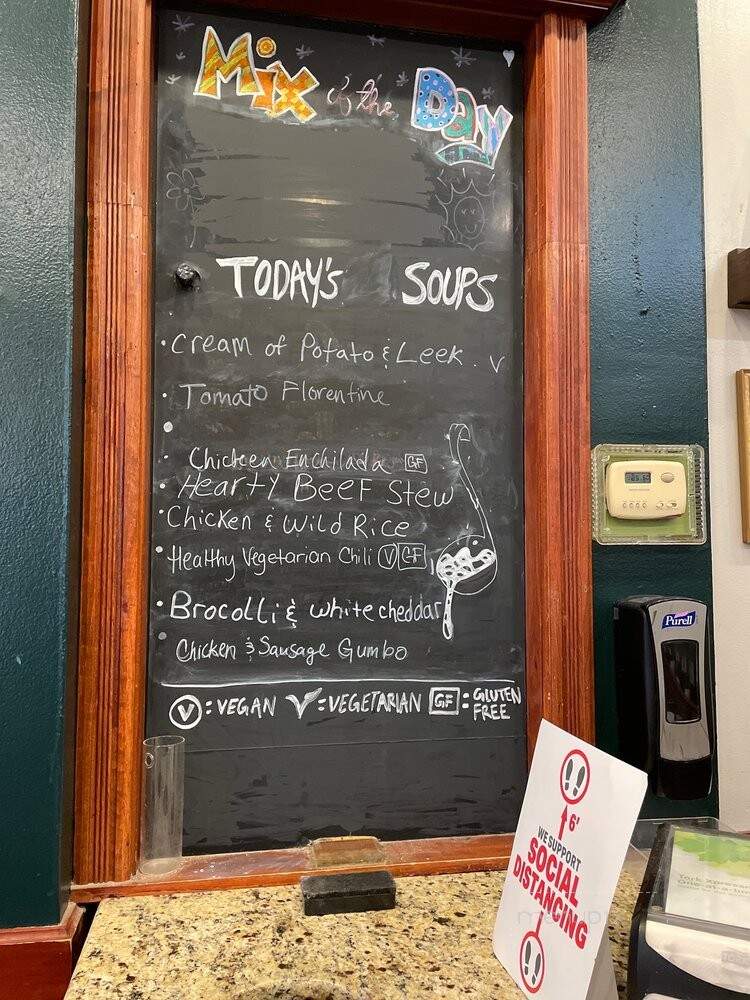 Mix of the Day
TODAY'S SOUPS
• Cream of Potato & Leek . V
• Tomato Florentine
•
• Chicken Enchilada GF
• Hearty Beef Stew
• Chicken & Wild Rice
• Healthy Vegetarian Chili V GF
• Brocolli & white cheddar
• Chicken & Sausage Gumbo
V : VEGAN V = VEGETARIAN GF : GLUTEN
FREE
Purell
6'
WE SUPPORT
SOCIAL
DISTANCING
Tork Xpress